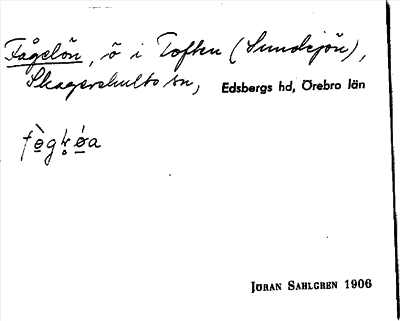 Fågelön, ö i Toften (Sundsjön),
Skagershults sn, Edsbergs hd, Örebro län
Jöran Sahlgren 1906